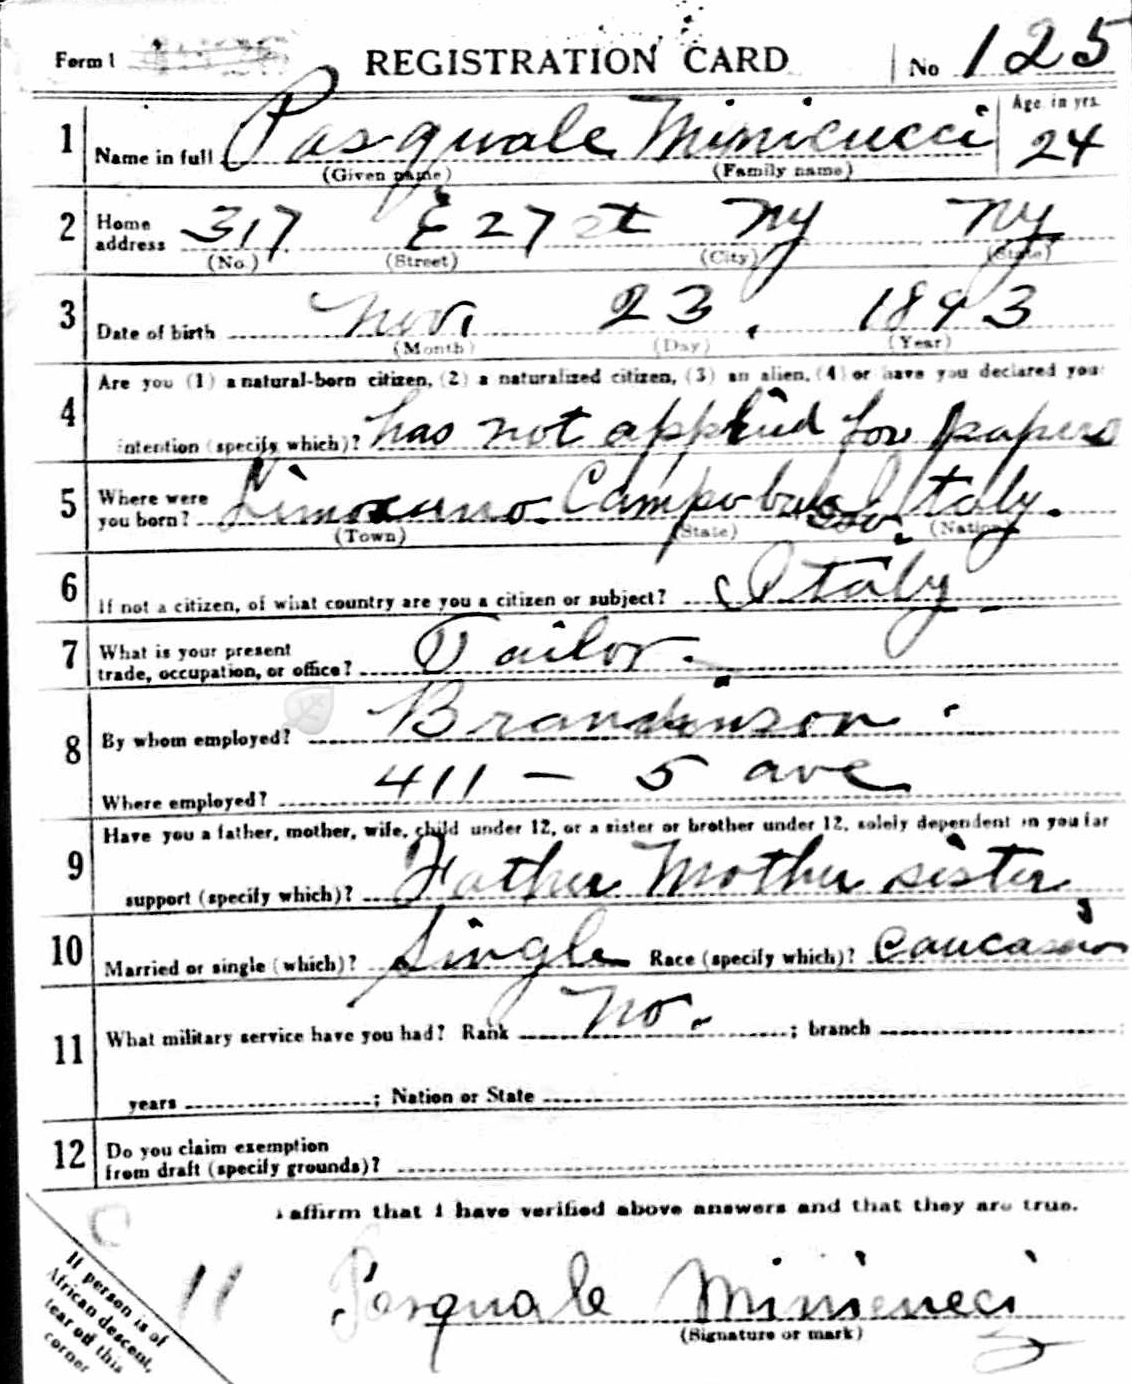 Form 1 REGISTRATION CARD No 125
1 Name in full Pasquale Minicucci Age, in yrs. 24
(Given name) (Family name)
2 Home address 317 E 27 st NY NY
(No.) (Street) (City) (State)
3 Date of birth Nov. 23, 1893
(Month) (Day) (Year)
4 Are you (1) a natural-born citizen, (2) a naturalized citizen, (3) an alien, (4) or have you declared your
intention (specify which)? has not applied for papers
5 Where were you born? Limosano. Campobasso. Italy.
(Town) (State) (Nation)
6 If not a citizen, of what country are you a citizen or subject? Italy
7 What is your present
trade, occupation, or office? Tailor.
8 By whom employed?
Where employed? 411 — 5 ave
9 Have you a father, mother, wife, child under 12, or a sister or brother under 12, solely dependent on you for
support (specify which)? Father Mother sister
10 Married or single (which)? Single Race (specify which)? Caucasian
11 What military service have you had? Rank No. ; branch
years ; Nation or State
12 Do you claim exemption
from draft (specify grounds)?
I affirm that I have verified above answers and that they are true.
If person is of
African descent,
tear off this
corner
11 Pasquale Minicucci
(Signature or mark)